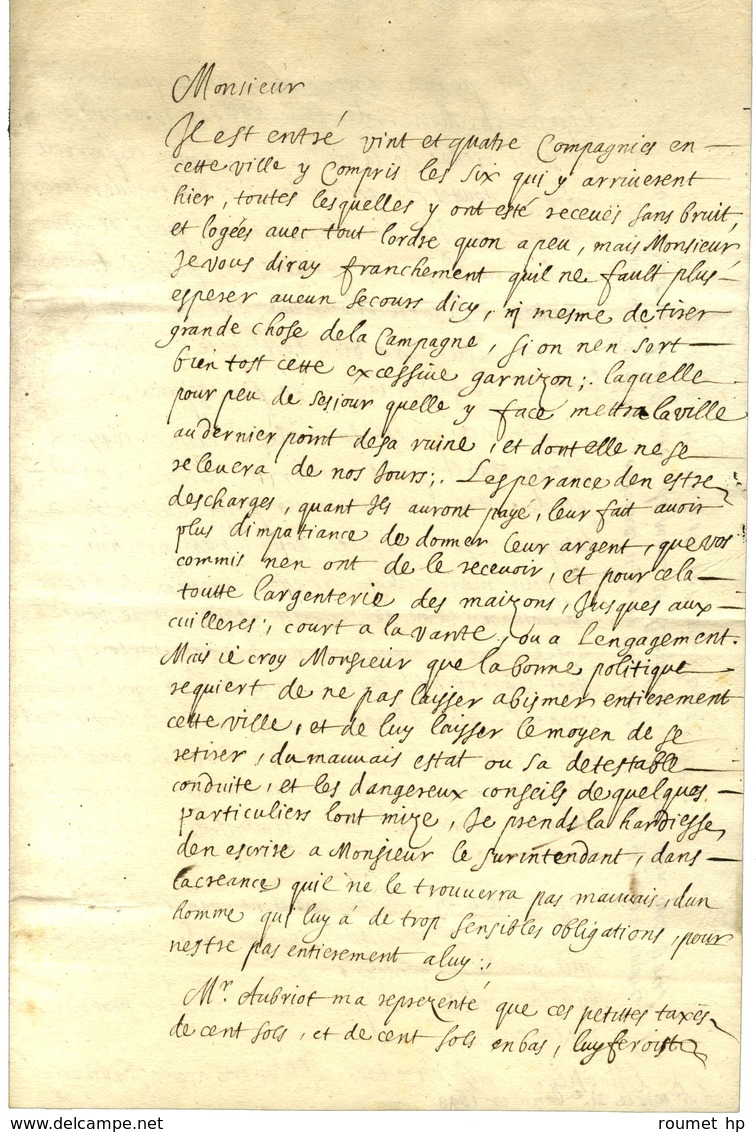 Monsieur
Il est entré vint et quatre Compagnies en
cette ville y Compris les six qui y arriverent
hier, toutes lesquelles y ont esté receuës sans bruit,
et logées avec tout lordre quon a peu, mais Monsieur,
Je vous diray franchement quil ne fault plus
esperer aucun secours dicy, ny mesme de tirer
grande chose dela Campagne, si on nen sort
bien tost cette excessive garnizon;. laquelle
pour peu de sesjour quelle y face mettra la ville
au dernier point de sa ruine, et dont elle ne se
relevera de nos Jours;. Lesperance den estre
descharges, quant Ils auront payé, leur fait avoir
plus dimpatiance de donner leur argent, que vos
commis nen ont de le recevoir, et pour cela
toutte largenterie des maizons, Jusques aux
cuilleres;, court a la vante, ou a Lengagement.
Mais ie croy Monsieur que la bonne politique
requiert de ne pas laisser abismer entierement
cette ville, et de luy laisser le moyen de se
retirer, du mauvais estat ou sa detestable
conduite, et les dangereux conseils de quelques
particuliers lont mize, Je prends la hardiesse
den escrire a Monsieur le surintendant, dans
la creance quil ne le trouverra pas mauvais, dun
homme qui luy à de trop sensibles obligations, pour
nestre pas entierement a luy;,
Mr. Aubriot ma reprezenté que ces petittes taxes
de cent sols, et de cent sols en bas, luy feroist
roumet hp